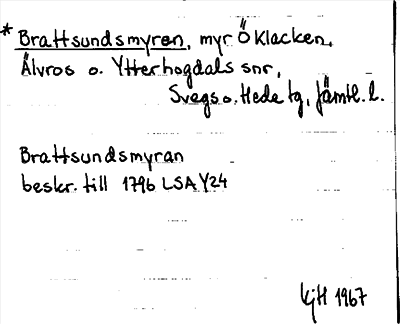 * Brattsundsmyren, myr Ö Klacken,
Älvros o. Ytterhogdals snr,
Svegs o. Hede tg, Jämtl. l.
Brattsundsmyran
beskr. till 1796 LSA Y24
KjH 1967